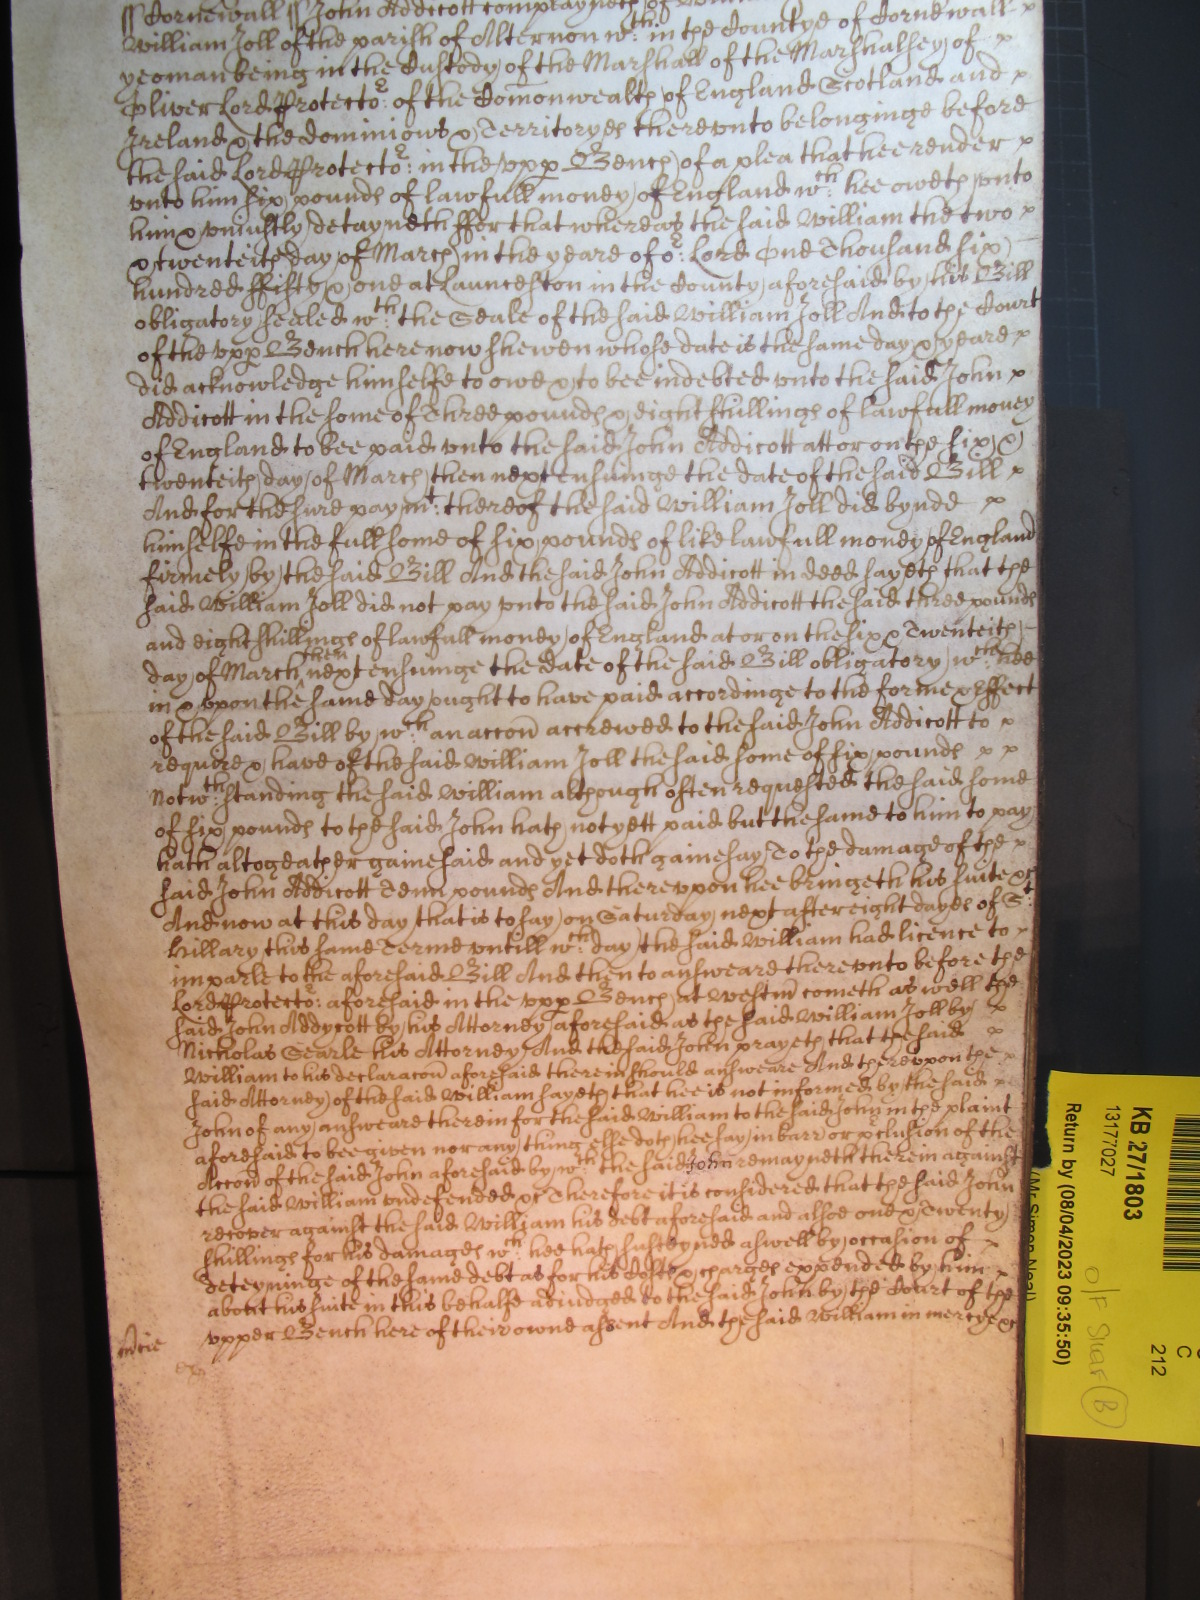 ss Cornewall ss John Addicott complayneth of
William Joll of the parish of Alternon wth: in the Countye of Cornewall x
yeoman being in the Custody of the Marshall of the Marshalsey of x
Oliver Lord Protector: of the Comonwealth of England Scotland and x
Ireland & the dominions & Territoryes thereunto belonginge before
the said Lord Protector: in the upp Bench of a plea that hee render x
unto him six pounds of lawfull money of England wch: hee oweth unto
him & uniustly detayneth ffor that whereas the said William the two x
& twenteith day of March in the yeare of or: Lord One Thousand six
hundred ffifty & one at Launceston in the County aforesaid by his Bill
obligatory sealed wth: the Seale of the said William Joll And to the Court
of the upp Bench here now shewen whose date is the same day & yeare x
did acknowledge himselfe to owe & to bee indebted unto the said John x
Addicott in the some of Three pounds & eight shillings of lawfull money
of England to bee paid unto the said John Addicott att or on the six &
twenteith day of March then next ensuinge the date of the said Bill x
And for the sure paymt: thereof the said William Joll did bynde x
himselfe in the full some of six pounds of like lawfull money of England
firmely by the said Bill And the said John Addicott in deed sayeth that the
said William Joll did not pay unto the said John Addicott the said three pounds
and eight shillings of lawfull money of England at or on the six & Twenteith
day of March then next ensuinge the date of the said Bill obligatory wch: hee
in & upon the same day ought to have paid accordinge to the forme & effect
of the said Bill by wch: an accon accrewed to the said John Addicott to x
require & have of the said William Joll the said some of six pounds x x
Notwth:standing the said William although often requested the said some
of six pounds to the said John hath not yett paid but the same to him to pay
hath altogeather gainesaid and yet doth gainesay To the damage of the x
said John Addicott Tenn pounds And thereupon hee bringeth his suite &c
And now at this day that is to say on Saturday next after eight dayes of St:
Hillary this same Terme untill wch: day the said William had licence to x
imparle to the aforesaid Bill And then to answeare thereunto before the
Lord Protector: aforesaid in the upp Bench at Westm cometh as well the
said John Addycott by his Attorney aforesaid as the said William Joll by x
Nicholas Searle his Attorney And the said John prayeth that the said x
William to his declaracon aforesaid therein should answeare And thereupon the x
said Attorney of the said William sayeth that hee is not informed by the said x
John of any answeare therein for the said William to the said John in the plaint
aforesaid to bee given nor any thing elle doth hee say in barr or &clusion of the
Accon of the said John aforesaid by wch the said John remayneth therein against
the said William undefended &c Therefore it is considered that the said John
recover against the said William his debt aforesaid and alsoe one & Twenty
shillings for his damages wch: hee hath susteyned aswell by occasion of x
deteyninge of the same debt as for his Costs & charges expended by him x
about his suite in this behalfe adiudged to the said John by the Court of the
upper Bench here of their owne assent And the said William in mercye &c
mcie
KB 27/1803
13177027
Return by (08/04/2023 09:35:50)
C
212
(Mr Simon Neal)